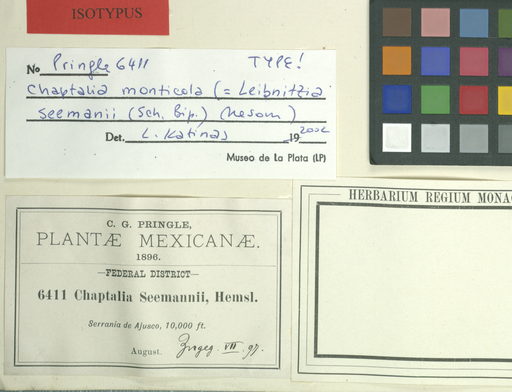 ISOTYPUS
No Pringle 6411 TYPE!
Chaptalia monticola (= Leibnitzia
seemanii (Sch. Bip.) Nesom)
Det. L. Katinas 19 2002
Museo de La Plata (LP)
HERBARIUM REGIUM MONAC
C. G. PRINGLE,
PLANTÆ MEXICANÆ.
1896.
—FEDERAL DISTRICT—
6411 Chaptalia Seemannii, Hemsl.
Serrania de Ajusco, 10,000 ft.
August. VII. 97.